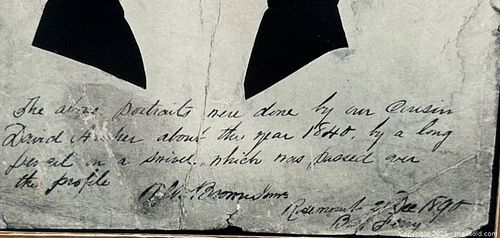 The above portraits were done by our Cousin
David Archer about the year 1840, by a long
pencil in a swivel, which was passed over
the profile
Rosemount 21 Dec 1890
Copyright 2025